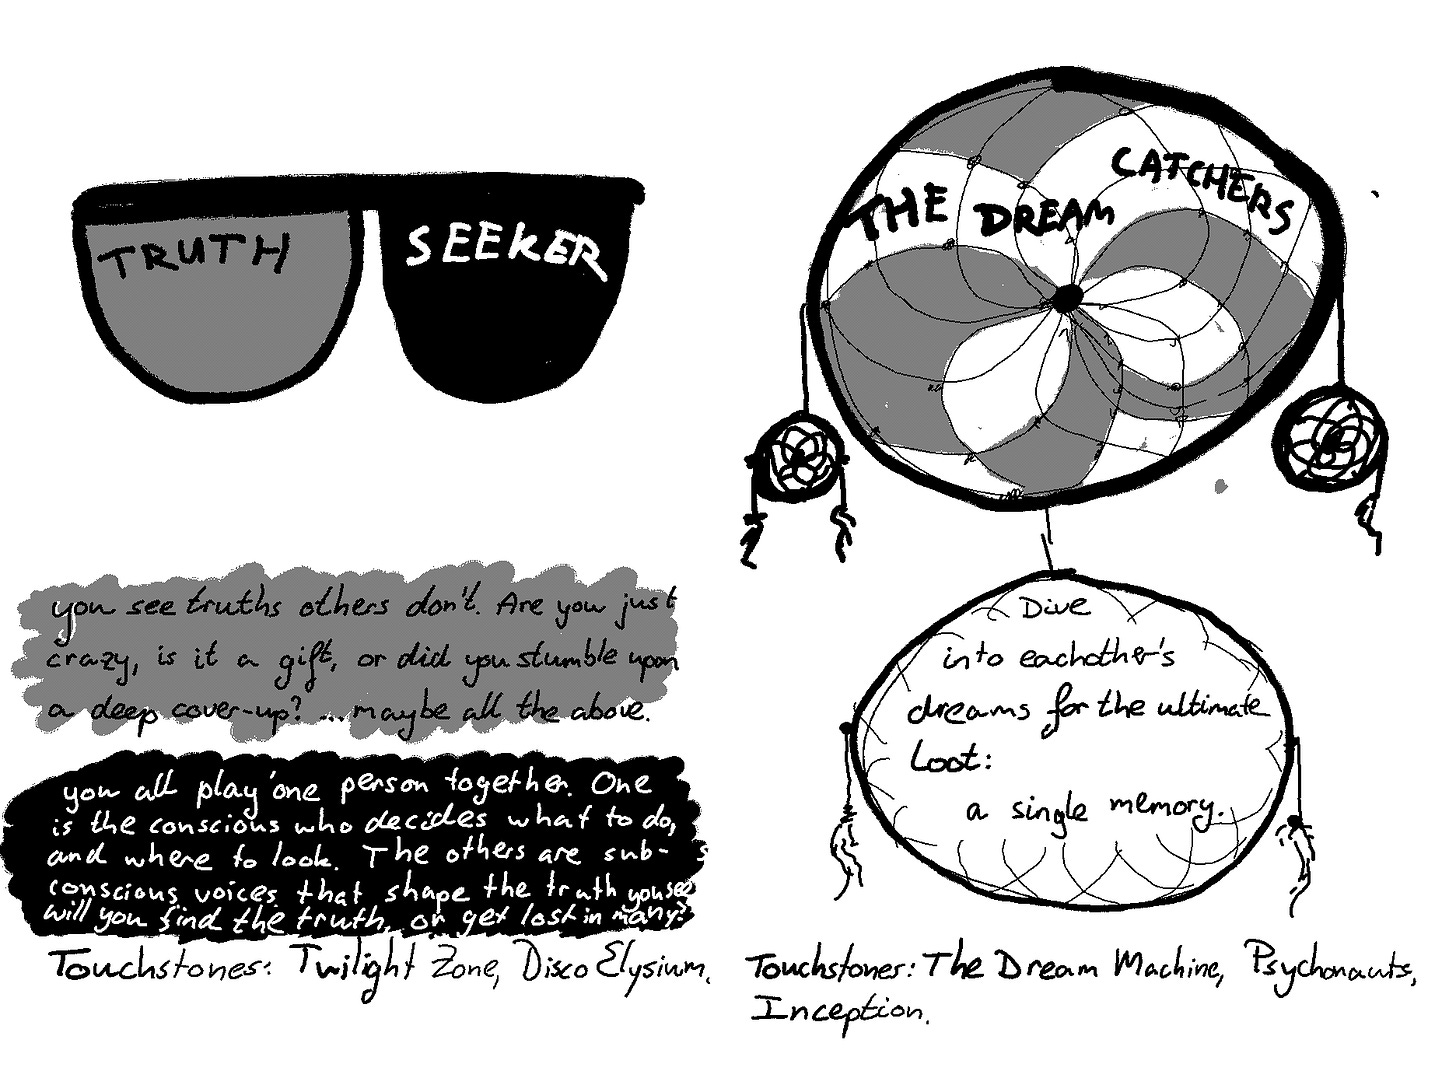 TRUTH SEEKER
you see truths others don't. Are you just
crazy, is it a gift, or did you stumble upon
a deep cover-up? ...maybe all the above.
you all play one person together. One
is the conscious who decides what to do,
and where to look. The others are sub-
conscious voices that shape the truth you see
will you find the truth, or get lost in many?
Touchstones: Twilight Zone, Disco Elysium.
THE DREAM CATCHERS
Dive
into eachother's
dreams for the ultimate
Loot:
a single memory.
Touchstones: The Dream Machine, Psychonauts,
Inception.